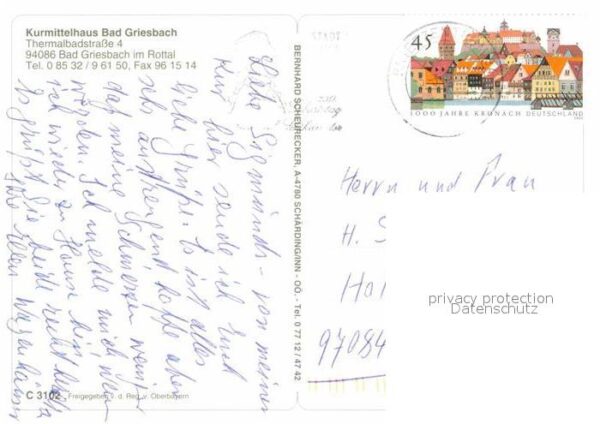 Kurmittelhaus Bad Griesbach
Thermalbadstraße 4
94086 Bad Griesbach im Rottal
Tel. 0 85 32 / 9 61 50, Fax 96 15 14
Liebe Sigmunds - von meiner
Kur hier sende ich Euch
liebe Grüße. Es ist alles
sehr anstrengend hoffe aber
daß meine Schmerzen weniger
werden. Ich melde mich wenn
ich wieder zu Hause bin
Es grüßt Sie beide recht herzl.
Ellen
C 3102 Freigegeben v. d. Reg. v. Oberbayern
BERNHARD SCHEURECKER, A-4780 SCHÄRDING/INN - OÖ. - Tel. 0 77 12 / 47 42
45
1000 JAHRE KRONACH DEUTSCHLAND
Herrn und Frau
H. S
97084
privacy protection
Datenschutz